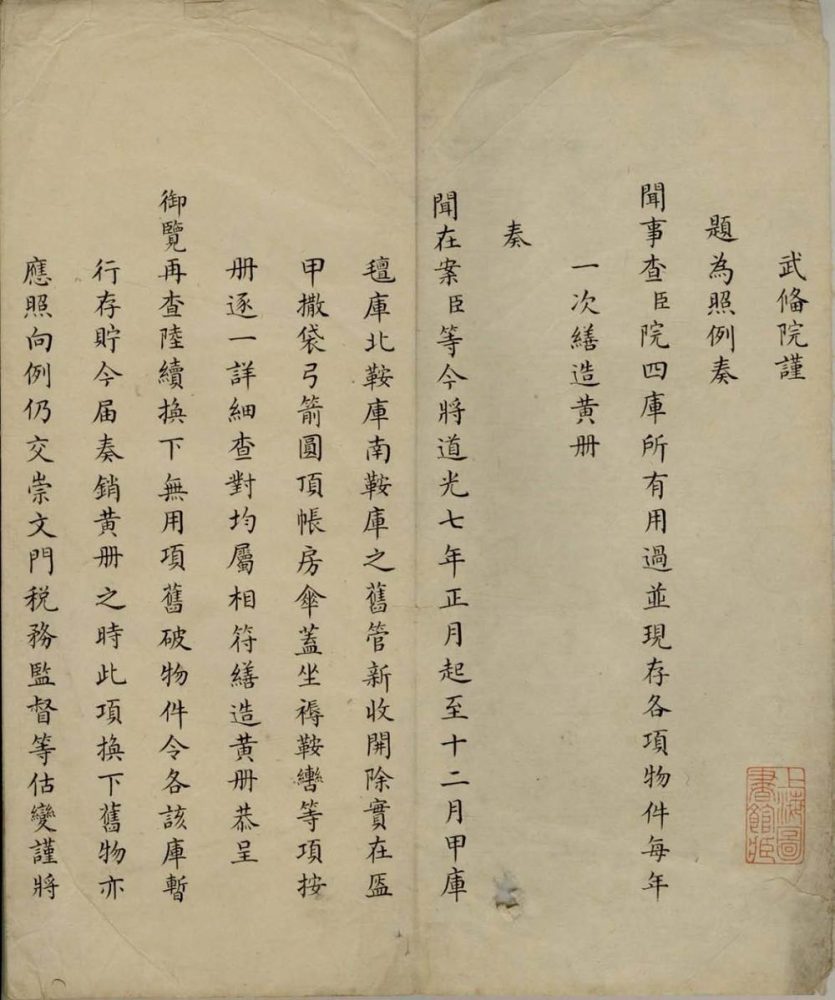 武俻院謹
題為照例奏
聞事查臣院四庫所有用過並現存各項物件每年
一次繕造黄册
奏
聞在案臣等今將道光七年正月起至十二月甲庫
氊庫北鞍庫南鞍庫之舊管新收開除實在盔
甲撒袋弓箭圓頂帳房傘蓋坐褥鞍轡等項按
册逐一詳細查對均屬相符繕造黄册恭呈
御覽再查陸續換下無用項舊破物件令各該庫暫
行存貯今届奏銷黄册之時此項換下舊物亦
應照向例仍交崇文門税務監督等估變謹將
上海圖書館藏